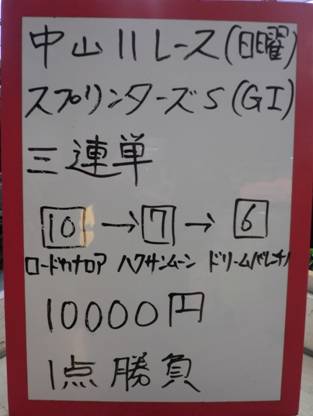 中山11レース(日曜)
スプリンターズS(GI)
三連単
10→7→6
ロードカナロア ハクサンムーン ドリームバレンチノ
10000円
1点勝負